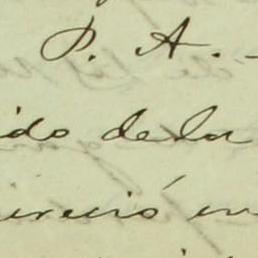 P. A. -
ido de la
ireció en